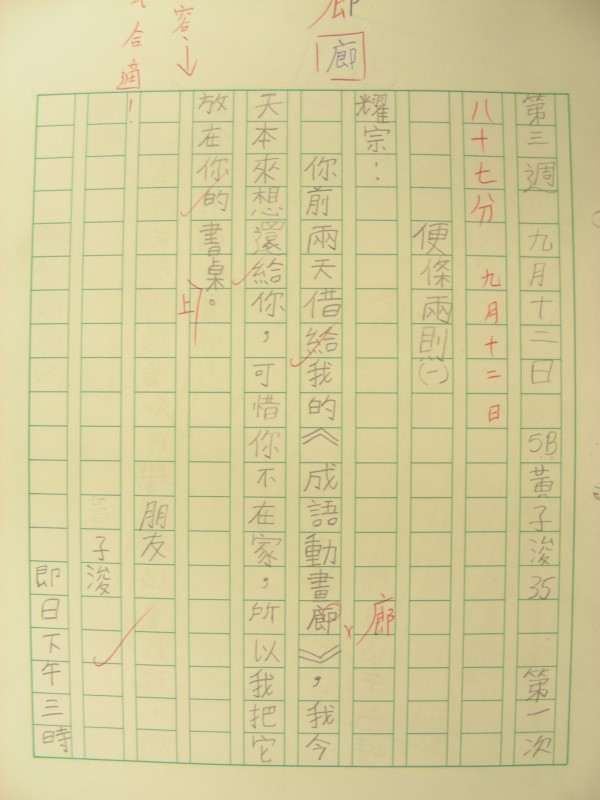 第三週 九月十二日 5B黃子浚35 第一次
八十七分 九月十二日
便條兩則(一)
耀宗：
廊
廊
廊
你前兩天借給我的《成語動畫廊》，我今
天本來想還給你，可惜你不在家，所以我把它
放在你的書桌。
上
容、
合適！
朋友
子浚
即日下午三時